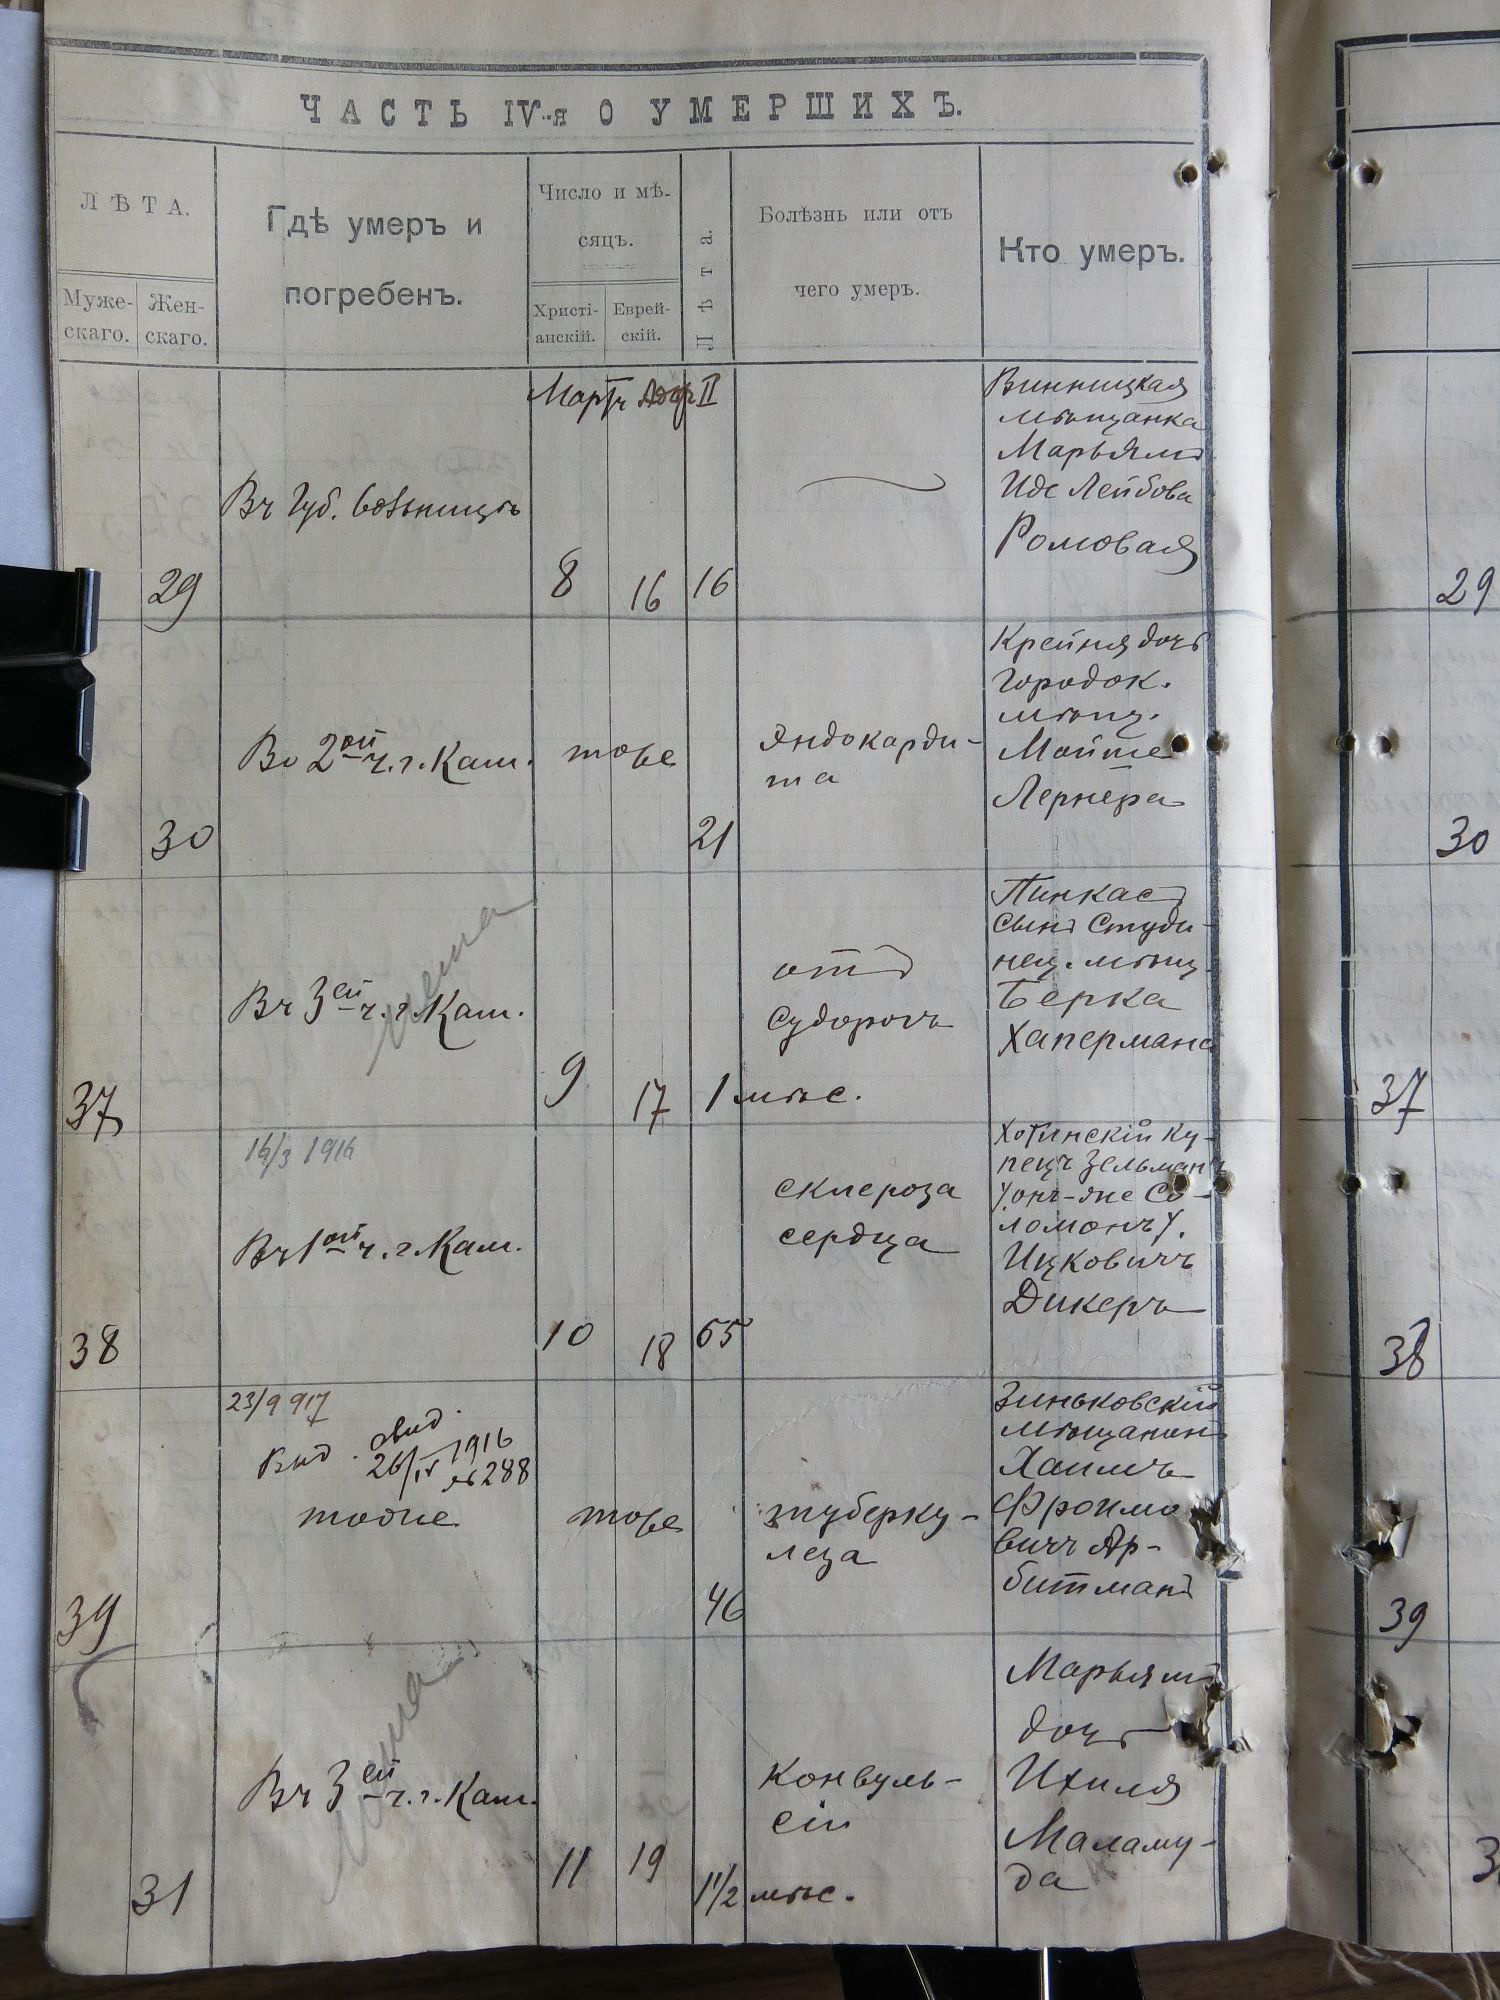 ЧАСТЬ IV-я О УМЕРШИХЪ.
ЛѢТА.
Муже-
скаго.
Жен-
скаго.
Гдѣ умеръ и
погребенъ.
Число и мѣ-
сяцъ.
Христі-
анскій.
Еврей-
скій.
Лѣта.
Болѣзнь или отъ
чего умеръ.
Кто умеръ.
Мартъ Адар II
29
Въ Губ. больницѣ
8
16
16
Винницкая
мѣщанка
Марьямъ
Иде Лейбова
Ромовая
29
30
Во 2ой ч. г. Кам.
тоже
21
эндокарди-
та
Крейня дочь
городок.
мѣщ.
Мойше
Лернера
30
37
Въ 3ей ч. г. Кам.
9
17
1 мѣс.
отъ
судорогъ
Пинкасъ
сынъ Студе-
нец. мѣщ.
Берка
Хапермана
37
16/3 1916
38
Въ 1ой ч. г. Кам.
10
18
65
склероза
сердца
Хотинскій ку-
пецъ Зельманъ
/онъ-же Со-
ломонъ/.
Ицковичъ
Дикеръ
38
23/9 917
Выд.
26/IV 1916
№ 288
39
тоже
46
туберку-
леза
Зиньковскій
мѣщанинъ
Хаимъ
Фроимо
вичъ Ар-
битманъ
39
31
Въ 3ей ч. г. Кам.
11
19
1 1/2 мѣс.
конвуль-
сіи
Марьямъ
дочь
Ихиля
Маламу-
да